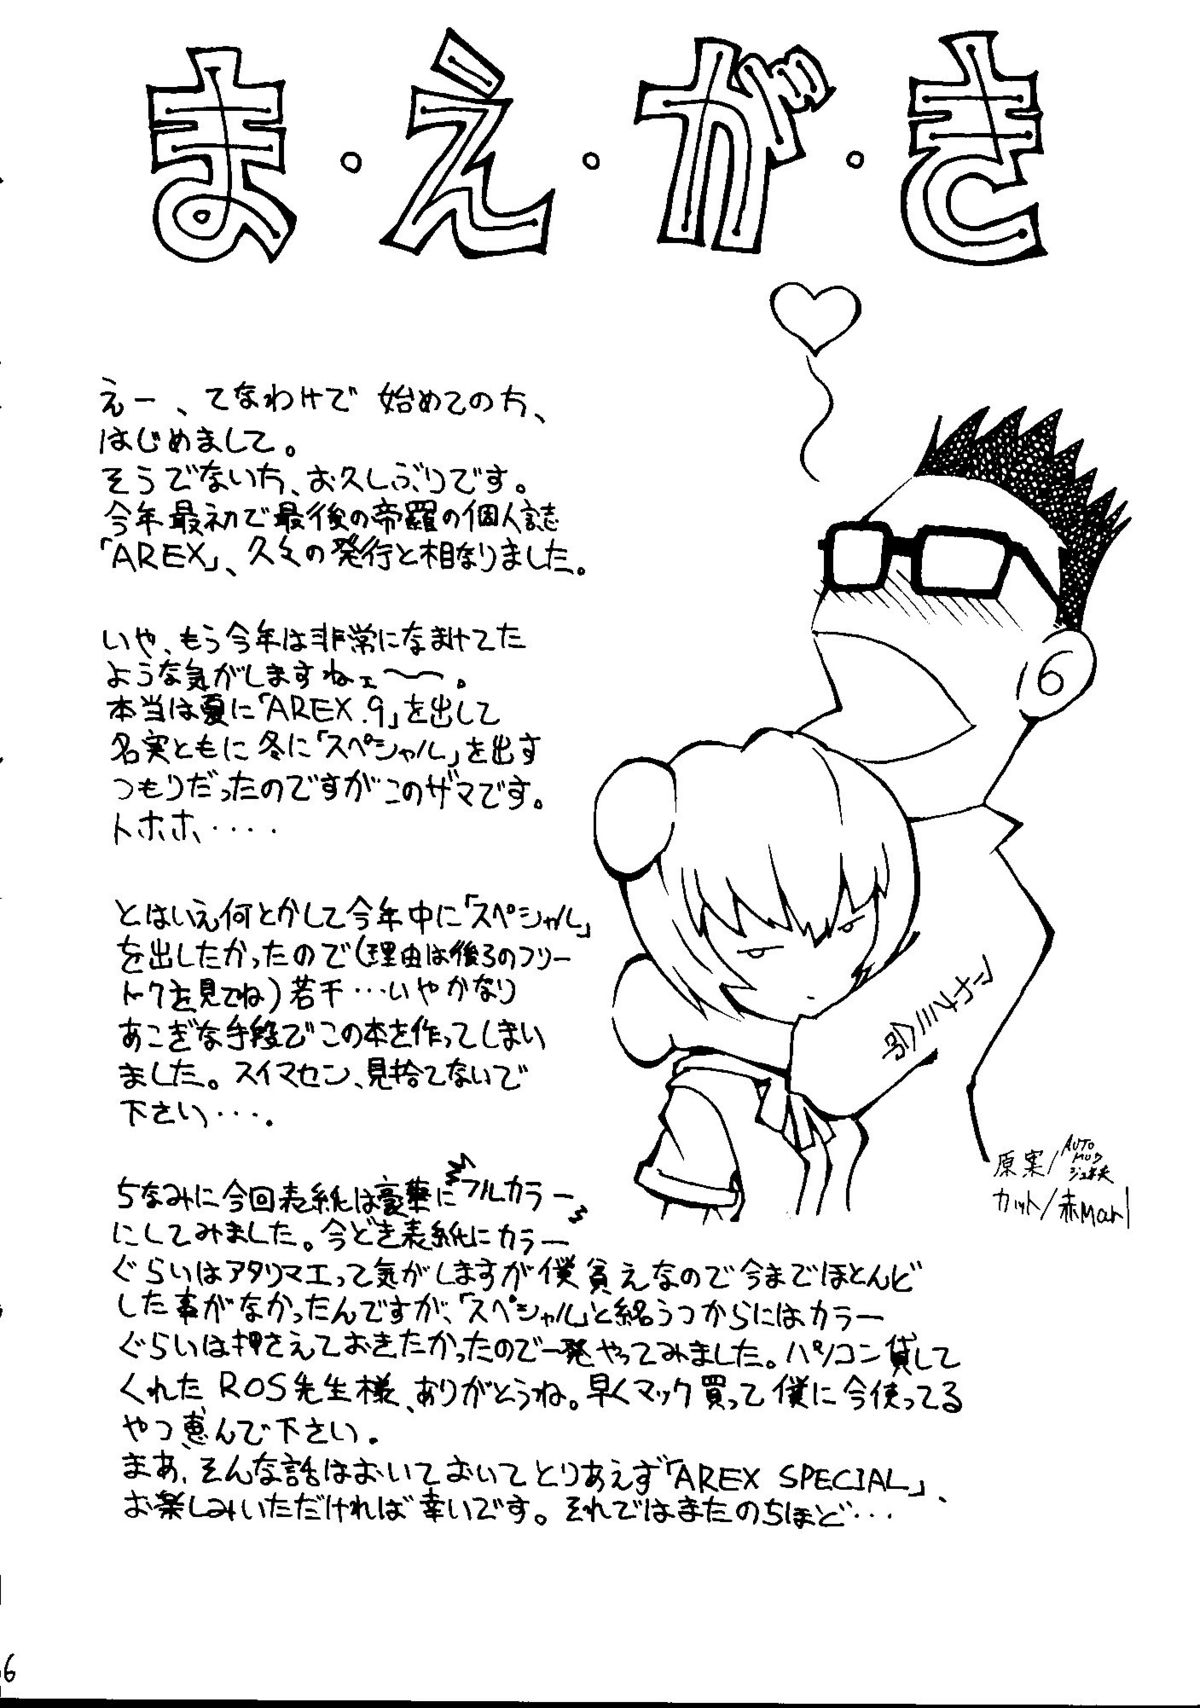 ま・え・が・き
えー、てなわけで 始めての方、
はじめまして。
そうでない方、お久しぶりです。
今年最初で最後の帝羅の個人誌
「AREX」、久々の発行と相なりました。
いや、もう今年は非常になまけてた
ような気がしますねェ〜〜。
本当は夏に「AREX.9」を出して
名実ともに冬に「スペシャル」を出す
つもりだったのですがこのザマです。
トホホ・・・・
とはいえ何とかして今年中に「スペシャル」
を出したかったので(理由は後ろのフリー
トークを見てね)若干・・・いやかなり
あこぎな手段でこの本を作ってしまい
ました。スイマセン、見捨てないで
下さい・・・。
ちなみに今回表紙は豪華にフルカラー
にしてみました。今どき表紙にカラー
ぐらいはアタリマエって気がしますが僕貧えなので今までほとんど
した事がなかったんですが、「スペシャル」と銘うつからにはカラー
ぐらいは押さえておきたかったので一発やってみました。パソコン貸して
くれたROS先生様、ありがとうね。早くマック買って僕に今使ってる
やつ恵んで下さい。
まあ、そんな話はおいておいてとりあえず「AREX SPECIAL」、
お楽しみいただければ幸いです。それではまたのちほど・・・
6
原案/AUTO
カット/赤Marl
6